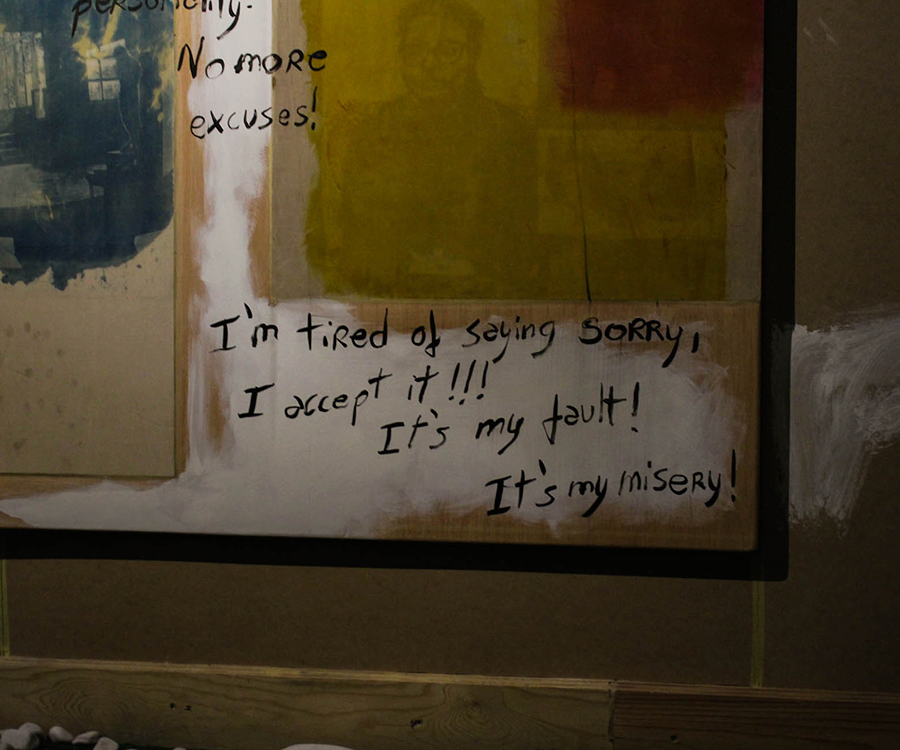 personality.
No more
excuses!
I'm tired of saying sorry,
I accept it!!!
It's my fault!
It's my misery!